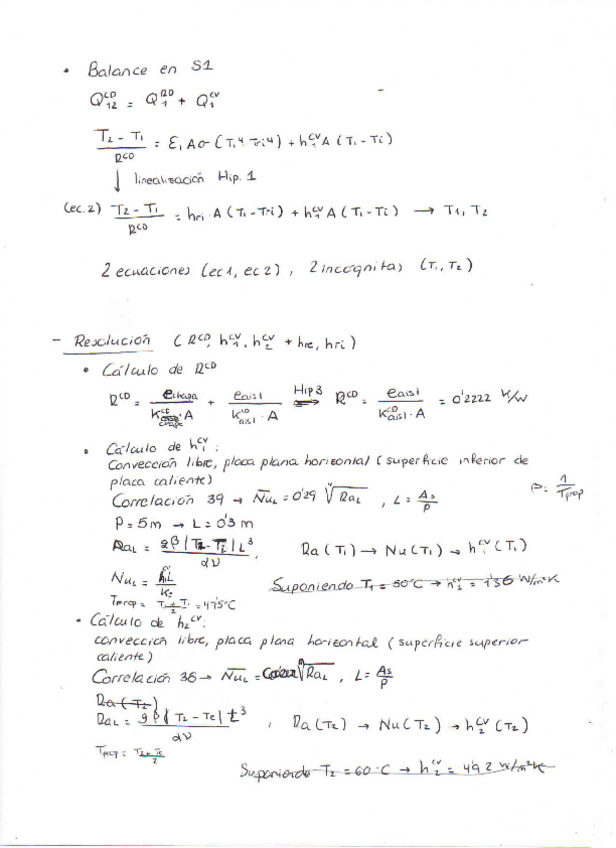 • Balance en S1
Q₁₂^CD = Q₁^RD + Q₁^CV
(T₂ - T₁)/R^CD = ε₁Aσ(T₁⁴ Tri⁴) + h₁^CV A (T₁ - Ti)
↓ linealización Hip. 1
(ec.2) (T₂ - T₁)/R^CD = hri · A (T₁ - Tri) + h₁^CV A (T₁ - Ti) → T₁, T₂
2 ecuaciones (ec1, ec2), 2 incognitas (T₁, T₂)
- Resolución (R^CD, h₁^CV, h₂^CV + hre, hri)
• Cálculo de R^CD
R^CD = e chapa/(K^CD chapa · A) + e aisl/(K^CD aisl · A) Hip 3 ⇒ R^CD = e aisl/(K^CD aisl · A) = 0'2222 K/W
• Cálculo de h₁^CV :
Convección libre, placa plana horizontal (superficie inferior de
placa caliente)
β = 1/Tprop
Correlación 39 → Nu_L = 0'29 ⁴√Ra_L , L = As/P
P = 5 m → L = 0'3 m
Ra_L = gβ|T₁ - Ti|L³/αν Ra(T₁) → Nu(T₁) → h₁^CV (T₁)
Nu_L = h₁L/K Suponiendo T₁ = 50°C → h₁^CV = 1'36 W/m²K
Tprop = (T₁ + Ti)/2 = 47'5°C
• Cálculo de h₂^CV:
convección libre, placa plana horizontal (superficie superior
caliente)
Correlación 36 → Nu_L = √Ra_L , L = As/P
Ra(T₂)
Ra_L = gβ|T₂ - Te|L³/αν , Ra(T₂) → Nu(T₂) → h₂^CV (T₂)
Tprop = (T₂ + Te)/2
Suponiendo T₂ = 60°C → h₂^CV = 4'92 W/m²K